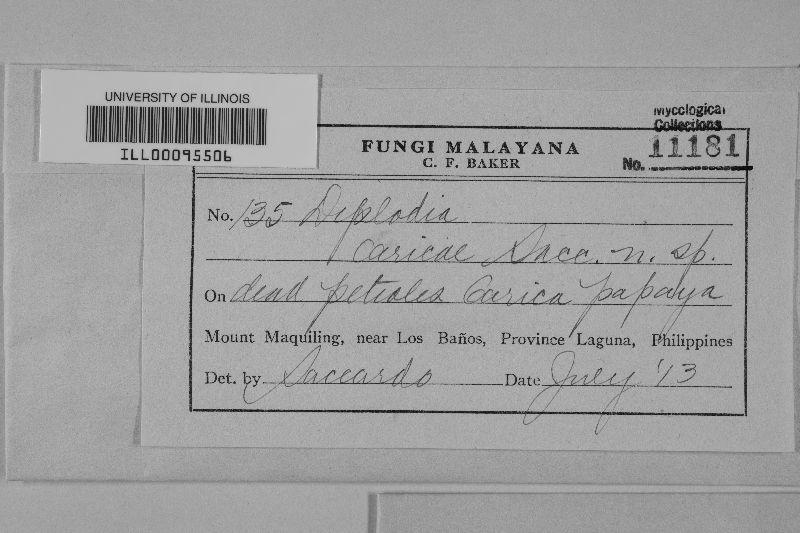 UNIVERSITY OF ILLINOIS
ILL00095506
Mycological
Collections
No. 11181
FUNGI MALAYANA
C. F. BAKER
No. 135 Diplodia
caricae Sacc. n. sp.
On dead petioles Carica papaya
Mount Maquiling, near Los Baños, Province Laguna, Philippines
Det. by Saccardo Date July '13